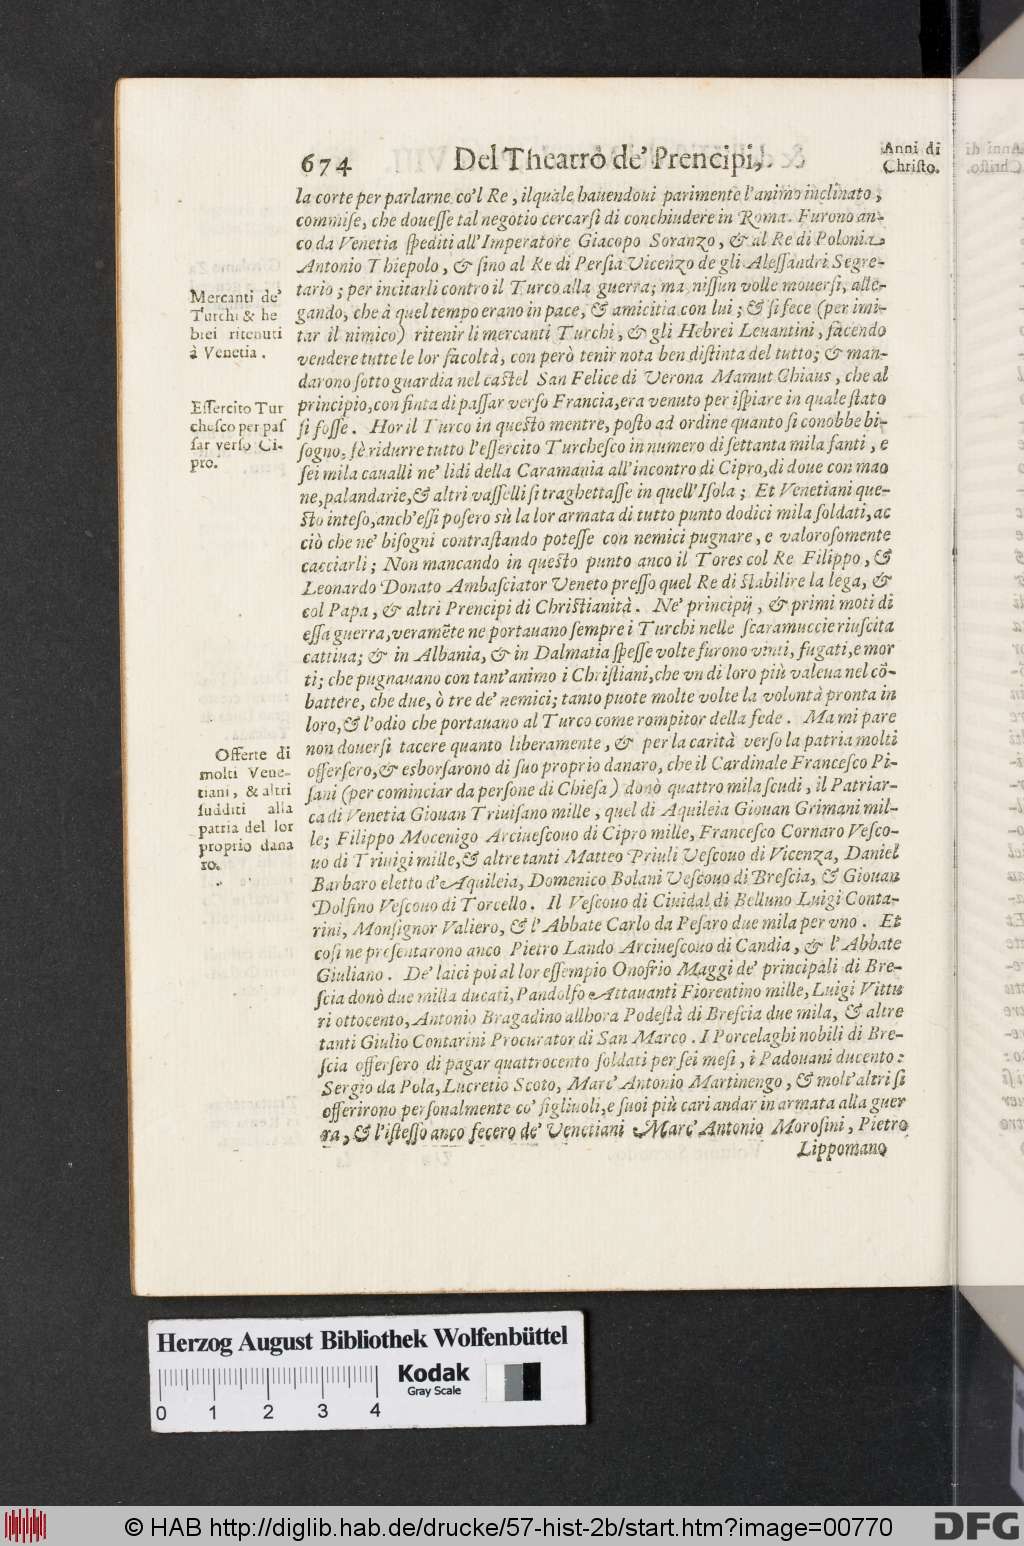 674 Del Theatro de' Prencipi,
Anni di
Christo.
la corte per parlarne co'l Re, ilquale hauendoui parimente l'animo inclinato,
commise, che douesse tal negotio cercarsi di conchiudere in Roma. Furono an-
co da Venetia spediti all'Imperatore Giacopo Soranzo, & al Re di Polonia
Antonio Thiepolo, & sino al Re di Persia Vicenzo de gli Alessandri Segre-
tario; per incitarli contro il Turco alla guerra; ma nissun volle mouersi, alle-
gando, che à quel tempo erano in pace, & amicitia con lui; & si fece (per imi-
tar il nimico) ritenir li mercanti Turchi, & gli Hebrei Leuantini, facendo
vendere tutte le lor facoltà, con però tenir nota ben distinta del tutto; & man-
darono sotto guardia nel castel San Felice di Verona Mamut Chiaus, che al
principio, con finta di passar verso Francia, era venuto per ispiare in quale stato
si fosse. Hor il Turco in questo mentre, posto ad ordine quanto si conobbe bi-
sogno, fè ridurre tutto l'essercito Turchesco in numero di settanta mila fanti, e
sei mila caualli ne' lidi della Caramania all'incontro di Cipro, di doue con mao
ne, palandarie, & altri vasselli si traghettasse in quell'Isola; Et Venetiani que-
sto inteso, anch'essi posero sù la lor armata di tutto punto dodici mila soldati, ac
ciò che ne' bisogni contrastando potesse con nemici pugnare, e valorosomente
cacciarli; Non mancando in questo punto anco il Tores col Re Filippo, &
Leonardo Donato Ambasciator Veneto presso quel Re di stabilire la lega, &
col Papa, & altri Prencipi di Christianità. Ne' principij, & primi moti di
essa guerra, veramẽte ne portauano sempre i Turchi nelle scaramuccie riuscita
cattiua; & in Albania, & in Dalmatia spesse volte furono vinti, fugati, e mor
ti; che pugnauano con tant'animo i Christiani, che vn di loro più valeua nel cõ-
battere, che due, ò tre de' nemici; tanto puote molte volte la volontà pronta in
loro, & l'odio che portauano al Turco come rompitor della fede. Ma mi pare
non douersi tacere quanto liberamente, & per la carità verso la patria molti
offersero, & esborsarono di suo proprio danaro, che il Cardinale Francesco Pi-
sani (per cominciar da persone di Chiesa) donò quattro mila scudi, il Patriar-
ca di Venetia Giouan Triuisano mille, quel di Aquileia Giouan Grimani mil-
le; Filippo Mocenigo Arciuescouo di Cipro mille, Francesco Cornaro Vesco-
uo di Triuigi mille, & altre tanti Matteo Priuli Vescouo di Vicenza, Daniel
Barbaro eletto d'Aquileia, Domenico Bolani Vescouo di Brescia, & Giouan
Dolfino Vescouo di Torcello. Il Vescouo di Ciuidal di Belluno Luigi Conta-
rini, Monsignor Valiero, & l'Abbate Carlo da Pesaro due mila per vno. Et
cosi ne presentarono anco Pietro Lando Arciuescouo di Candia, & l'Abbate
Giuliano. De' laici poi al lor essempio Onofrio Maggi de' principali di Bre-
scia donò due milla ducati, Pandolfo Attauanti Fiorentino mille, Luigi Vittu
ri ottocento, Antonio Bragadino allhora Podestà di Brescia due mila, & altre
tanti Giulio Contarini Procurator di San Marco. I Porcelaghi nobili di Bre-
scia offersero di pagar quattrocento soldati per sei mesi, i Padouani ducento:
Sergio da Pola, Lucretio Scoto, Marc'Antonio Martinengo, & molt'altri si
offerirono personalmente co' figliuoli, e suoi più cari andar in armata alla guer
ra, & l'istesso anco fecero de' Venetiani Marc'Antonio Morosini, Pietro
Lippomano
Mercanti de'
Turchi & he
brei ritenuti
à Venetia.
Essercito Tur
chesco per pas
sar verso Ci-
pro.
Offerte di
molti Vene-
tiani, & altri
sudditi alla
patria del lor
proprio dana
ro.
Herzog August Bibliothek Wolfenbüttel
Kodak
Gray Scale
0 1 2 3 4
© HAB http://diglib.hab.de/drucke/57-hist-2b/start.htm?image=00770
DFG